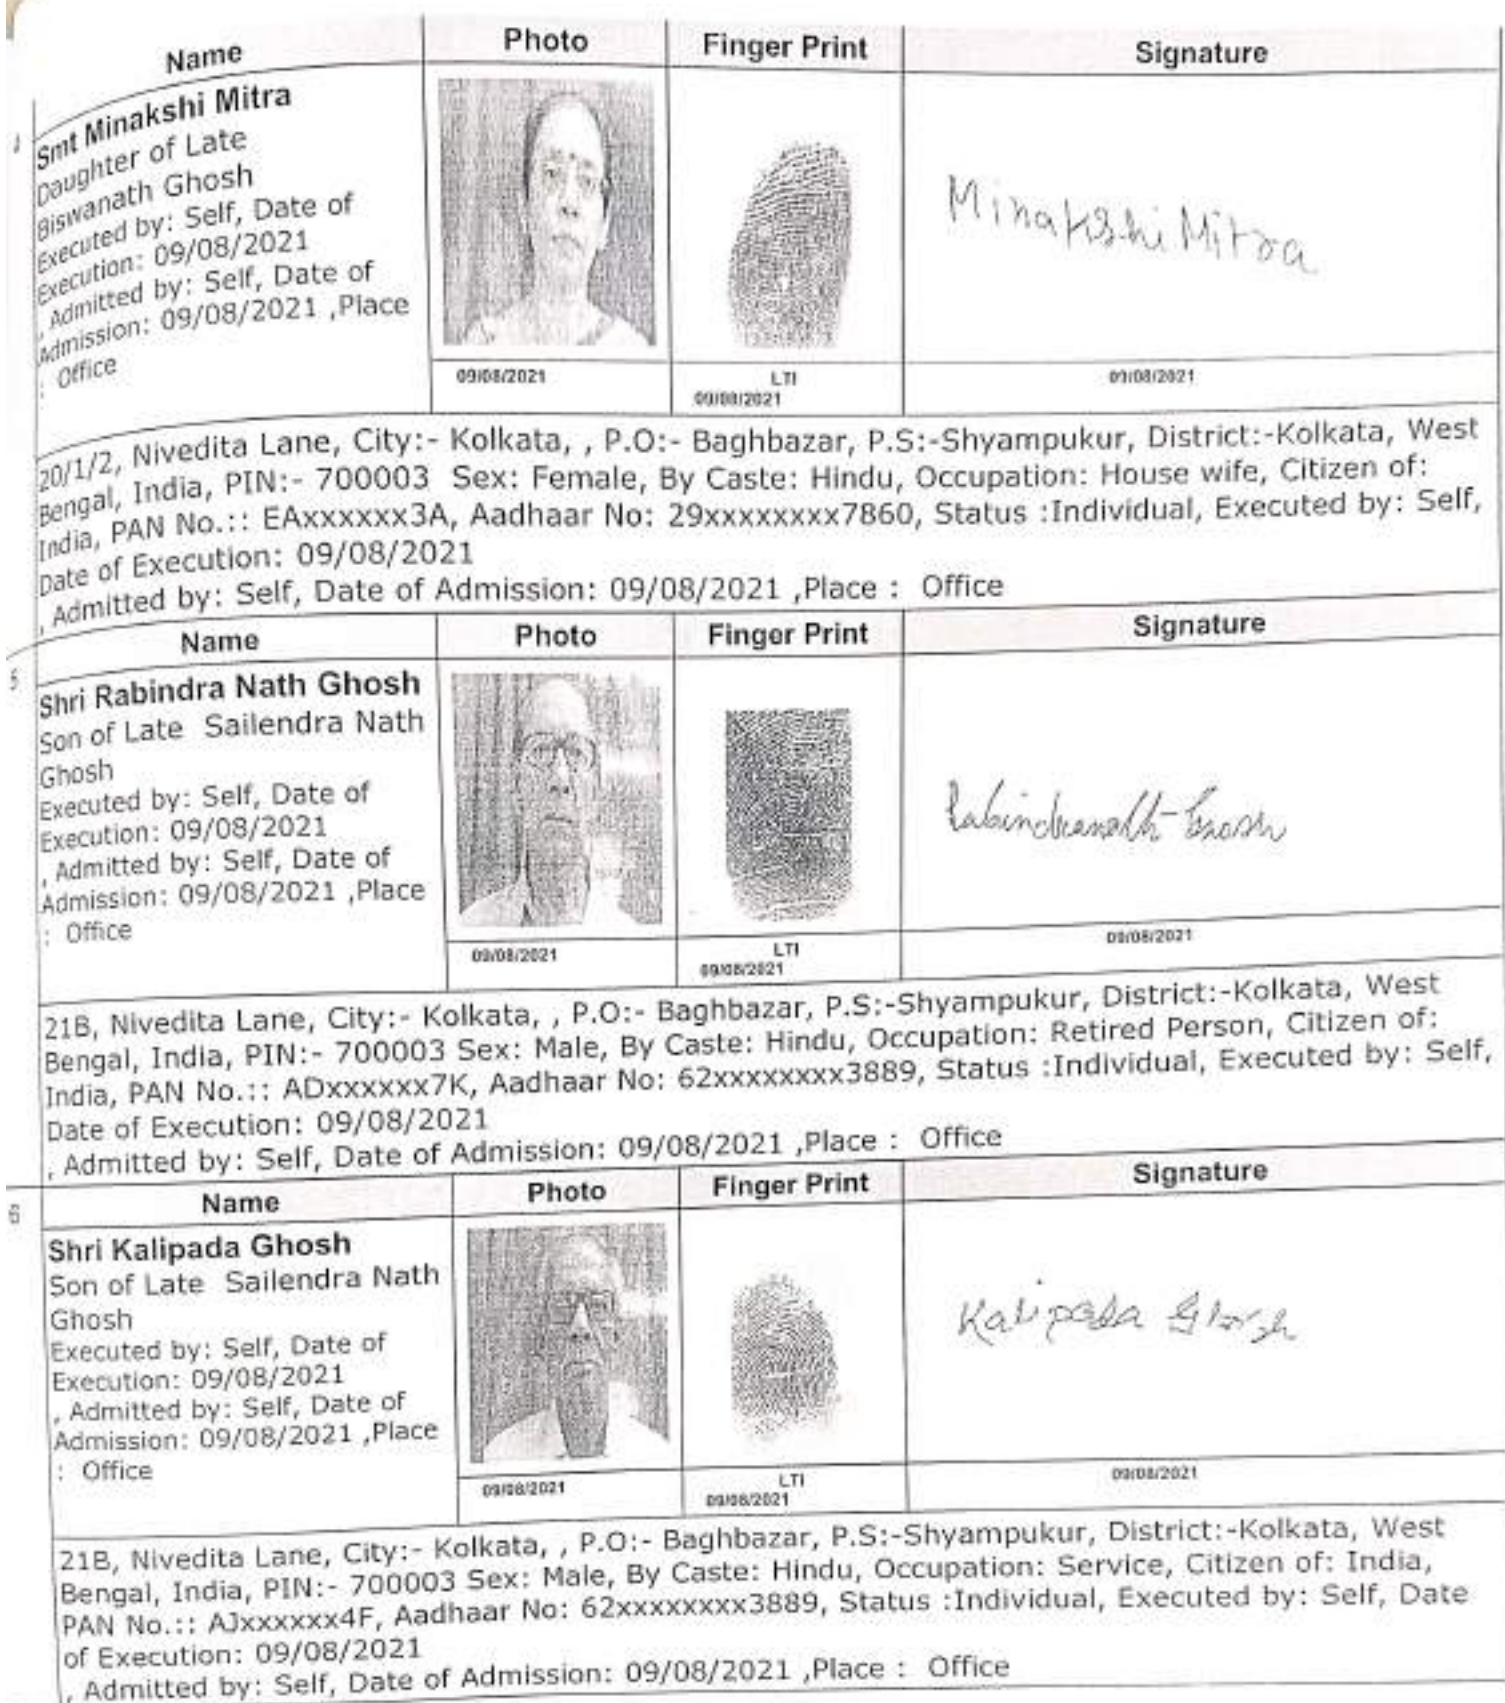 Name Photo Finger Print Signature
Smt Minakshi Mitra
Daughter of Late
Biswanath Ghosh
Executed by: Self, Date of
Execution: 09/08/2021
, Admitted by: Self, Date of
Admission: 09/08/2021 ,Place
: Office
Minakshi Mitra
09/08/2021 LTI 09/08/2021
09/08/2021
20/1/2, Nivedita Lane, City:- Kolkata, , P.O:- Baghbazar, P.S:-Shyampukur, District:-Kolkata, West
Bengal, India, PIN:- 700003 Sex: Female, By Caste: Hindu, Occupation: House wife, Citizen of:
India, PAN No.:: EAxxxxxx3A, Aadhaar No: 29xxxxxxxx7860, Status :Individual, Executed by: Self,
Date of Execution: 09/08/2021
, Admitted by: Self, Date of Admission: 09/08/2021 ,Place : Office
Name Photo Finger Print Signature
Shri Rabindra Nath Ghosh
Son of Late Sailendra Nath
Ghosh
Executed by: Self, Date of
Execution: 09/08/2021
, Admitted by: Self, Date of
Admission: 09/08/2021 ,Place
: Office
Rabindranath Ghosh
09/08/2021 LTI 09/08/2021
09/08/2021
21B, Nivedita Lane, City:- Kolkata, , P.O:- Baghbazar, P.S:-Shyampukur, District:-Kolkata, West
Bengal, India, PIN:- 700003 Sex: Male, By Caste: Hindu, Occupation: Retired Person, Citizen of:
India, PAN No.:: ADxxxxxx7K, Aadhaar No: 62xxxxxxxx3889, Status :Individual, Executed by: Self,
Date of Execution: 09/08/2021
, Admitted by: Self, Date of Admission: 09/08/2021 ,Place : Office
Name Photo Finger Print Signature
Shri Kalipada Ghosh
Son of Late Sailendra Nath
Ghosh
Executed by: Self, Date of
Execution: 09/08/2021
, Admitted by: Self, Date of
Admission: 09/08/2021 ,Place
: Office
Kalipada Ghosh
09/08/2021 LTI 09/08/2021
09/08/2021
21B, Nivedita Lane, City:- Kolkata, , P.O:- Baghbazar, P.S:-Shyampukur, District:-Kolkata, West
Bengal, India, PIN:- 700003 Sex: Male, By Caste: Hindu, Occupation: Service, Citizen of: India,
PAN No.:: AJxxxxxx4F, Aadhaar No: 62xxxxxxxx3889, Status :Individual, Executed by: Self, Date
of Execution: 09/08/2021
, Admitted by: Self, Date of Admission: 09/08/2021 ,Place : Office